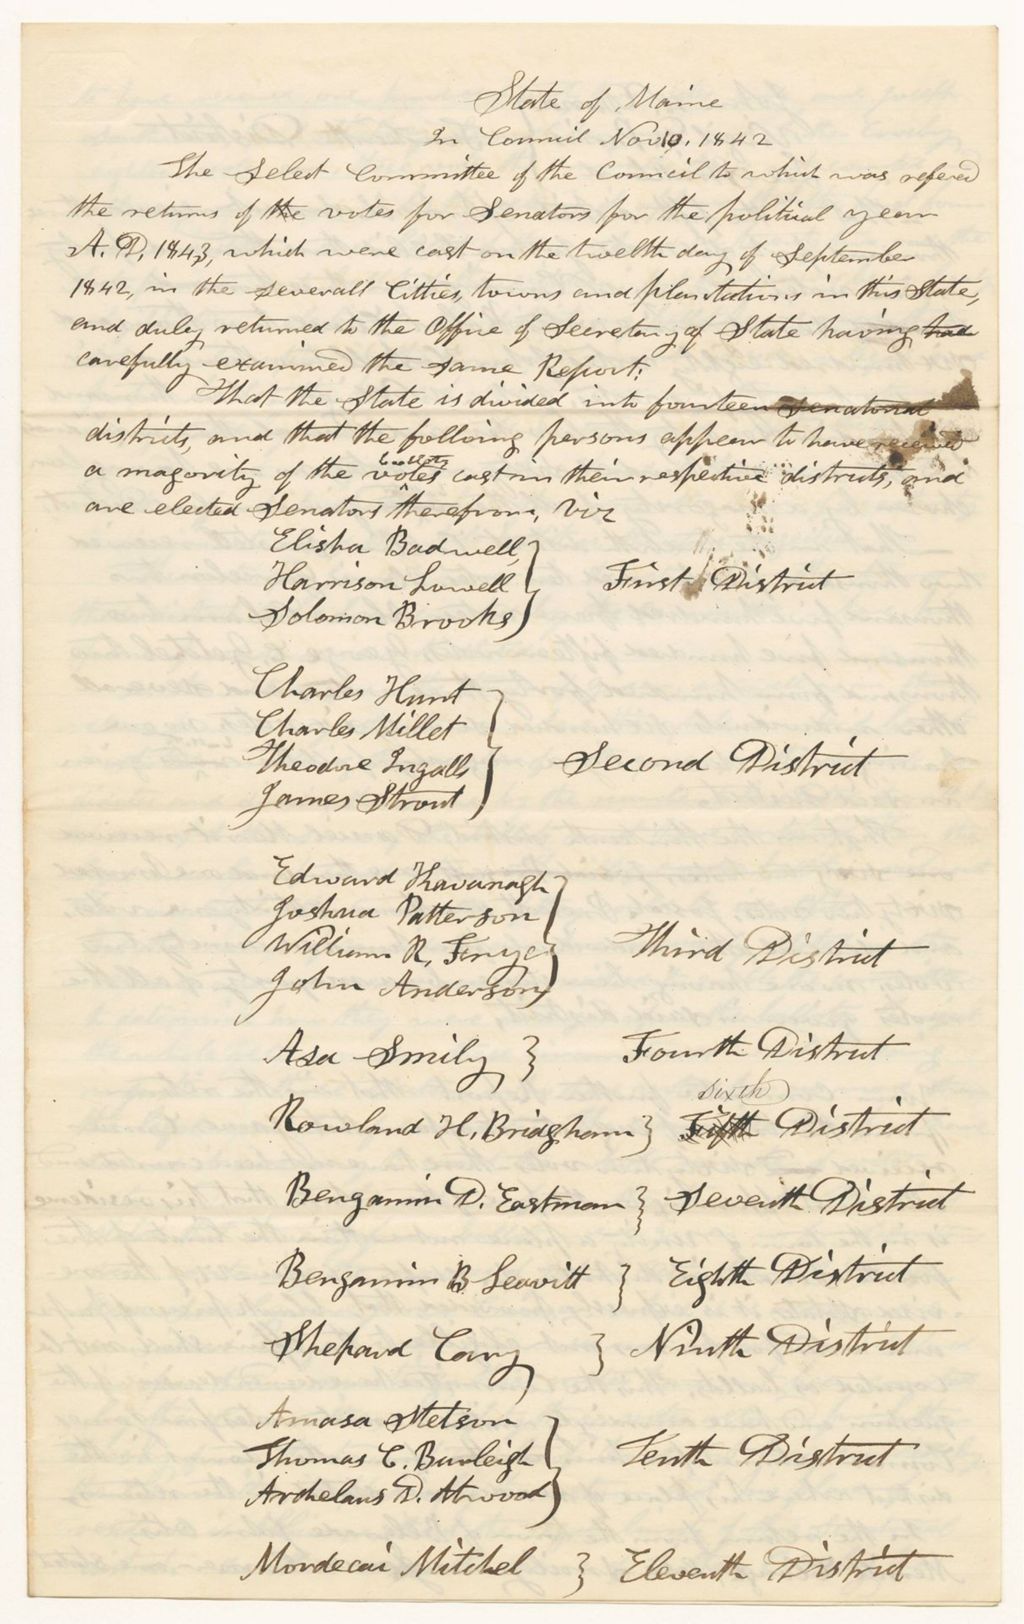 State of Maine
In Council Nov 10. 1842
The Select Committee of the Council to which was refered
the returns of the votes for Senators for the political year
A. D. 1843, which were cast on the twelth day of September
1842, in the severall Citties, towns and plantations in this State,
and duley returned to the Office of Secretary of State having had
carefully examined the same Report:
That the State is divided into fourteen Senatorial
districts, and that the folloing persons appear to have received
ballots
a magority of the votes cast in their respective districts, and
are elected Senators therefrom, viz
Elisha Badwell,
Harrison Lowell } First District
Solomon Brooks
Charles Hunt
Charles Millet
Theodore Ingalls } Second District
James Strout
Edward Kavanagh
Joshua Patterson
William R. Frye } Third District
John Anderson
Asa Smily } Fourth District
Sixth
Rowland H. Bridgham } Fifth District
Bengamin D. Eastman } Seventh District
Bengamin B Leavitt } Eighth District
Shepard Cary } Ninth District
Amasa Stetson
Thomas C. Burleigh } Tenth District
Archelaus D. Atwood
Mordecai Mitchel } Eleventh District